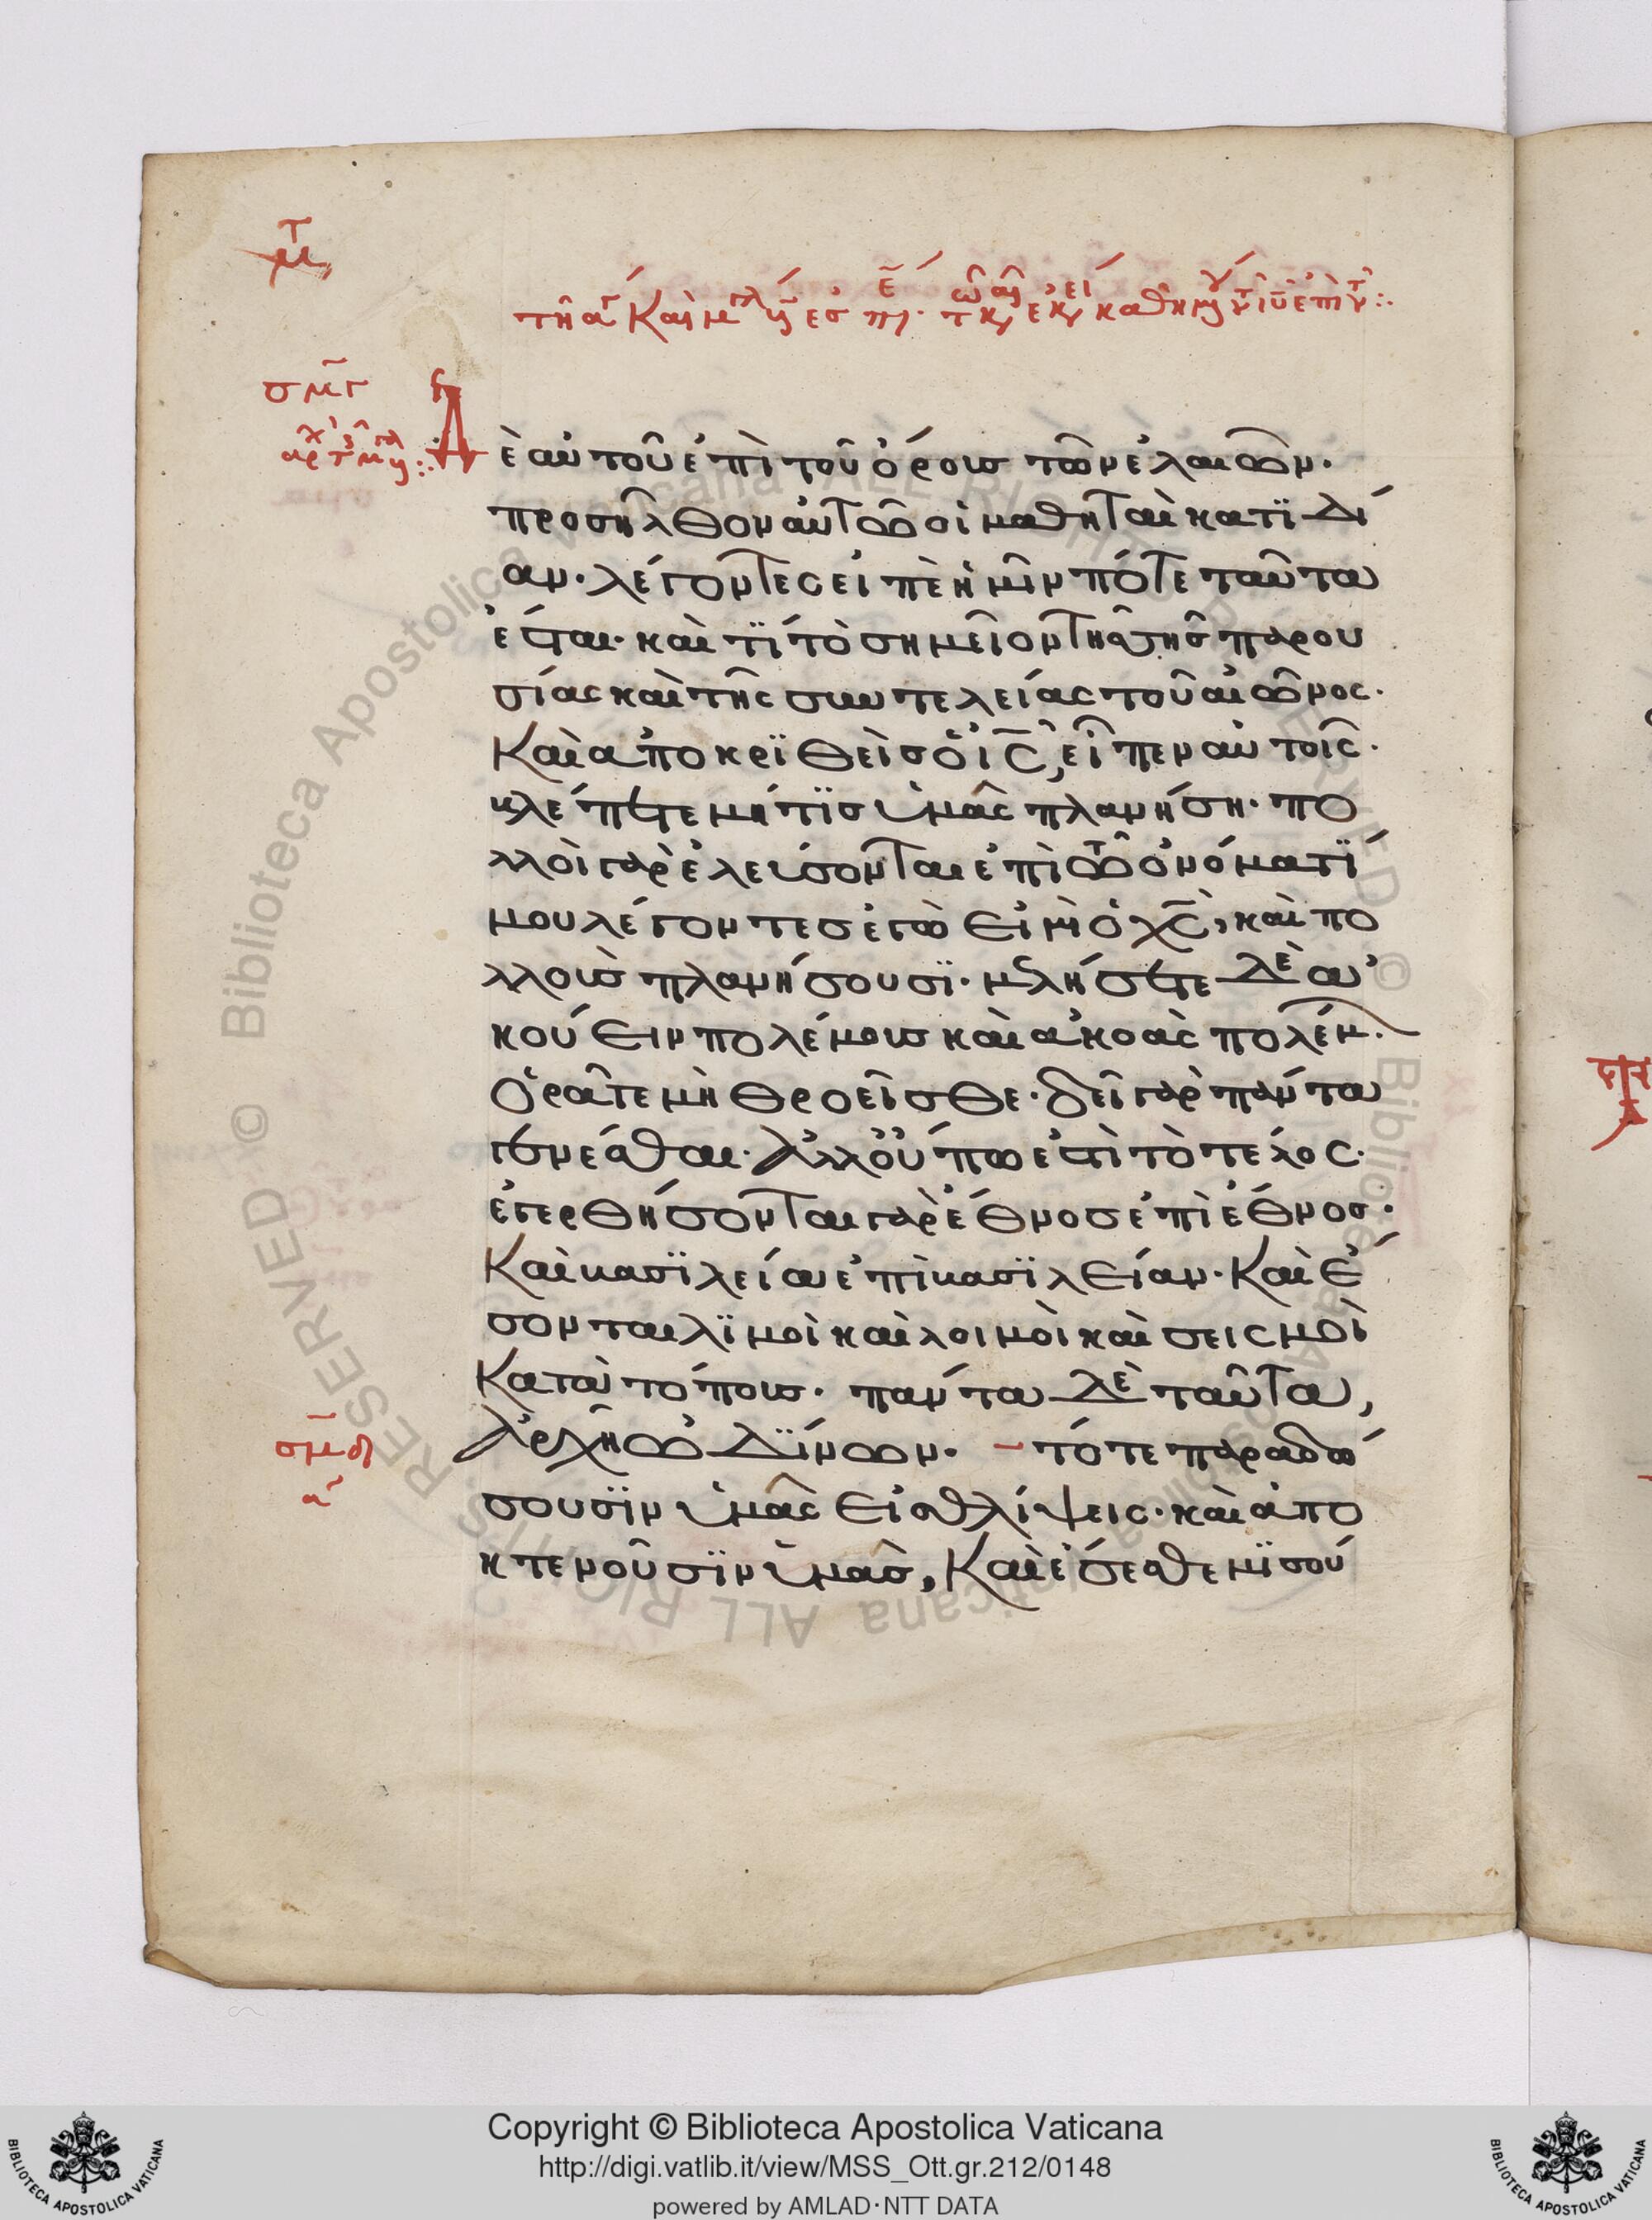 σμγ
ὲ αὐτοῦ ἐπὶ τοῦ ὄρους τῶν ἐλαιῶν·
προσῆλθον αὐτῶ οἱ μαθηταὶ κατϊδί
αν· λέγοντες εἰπὲ ἡμῖν πότε ταῦτα
ἔσται· καὶ τΐ τὸ σημεῖον τῆς σῆς παρου
σίας καὶ τῆς συντελείας τοῦ αἰῶνος·
Καὶ ἀποκρϊθεὶς ὁ ις, εἶπεν αὐτοῖς·
βλέπετε μή τϊς ὑμᾶς πλανήση· πο
λλοὶ γὰρ ἐλεύσονται ἐπὶ τῶ ὀνόματΐ
μου λέγοντες ἐγώ εἰμι ὁ χς, καὶ πο
λλοὺς πλανήσουσϊ· μελήσετε δὲ ἀ
κούειν πολέμους καὶ ἀκοὰς πολέμ·
Ὁρᾶτε μὴ θροεῖσθε· δεῖ γὰρ πάντα
γενέσθαι· ἀλλ' οὔπω ἐστὶ τὸ τέλος·
ἐγερθήσονται γὰρ ἔθνος ἐπὶ ἔθνος·
Καὶ βασϊλεία ἐπὶ βασϊλείαν· Καὶ ἔ
σονται λϊμοὶ καὶ λοιμοὶ καὶ σεισμοὶ
Κατὰ τόπους· πάντα δὲ ταῦτα,
ἀρχὴ ὠδΐνων· τότε παραδώ
σουσϊν ὑμᾶς εἰς θλίψεις· καὶ ἀπο
κτενοῦσϊν ὑμᾶς, Καὶ ἔσεσθε μϊσού
σμδ
Copyright © Biblioteca Apostolica Vaticana
http://digi.vatlib.it/view/MSS_Ott.gr.212/0148
powered by AMLAD·NTT DATA
BIBLIOTECA APOSTOLICA VATICANA
BIBLIOTECA APOSTOLICA VATICANA